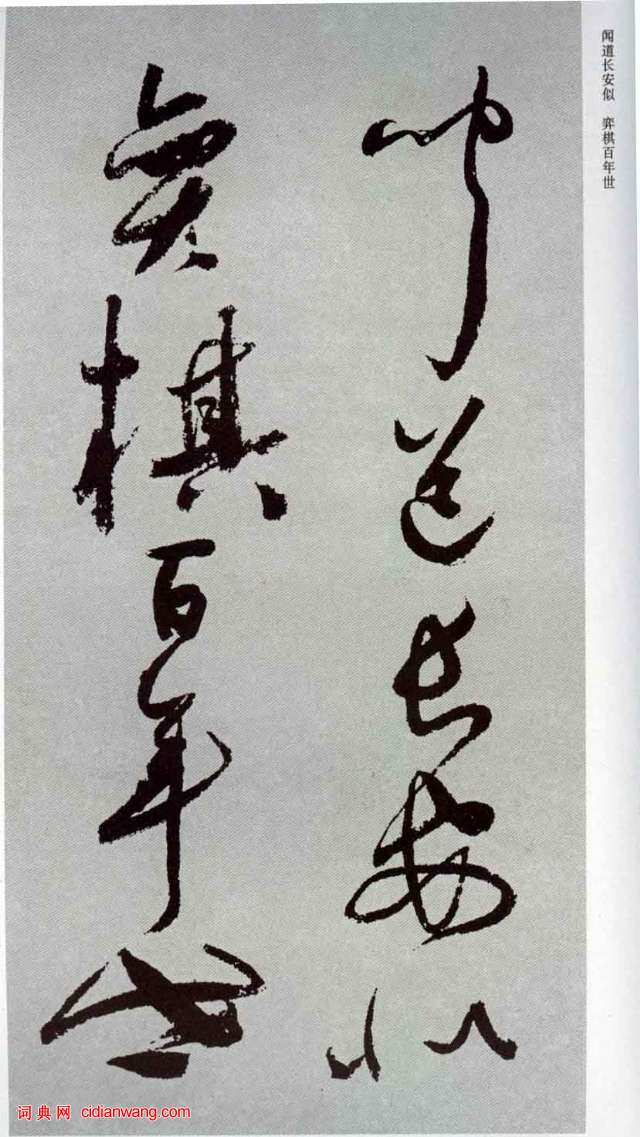 闻道长安似 弈棋百年世
聞道長安似
弈棋百年世
词典网 cidianwang.com